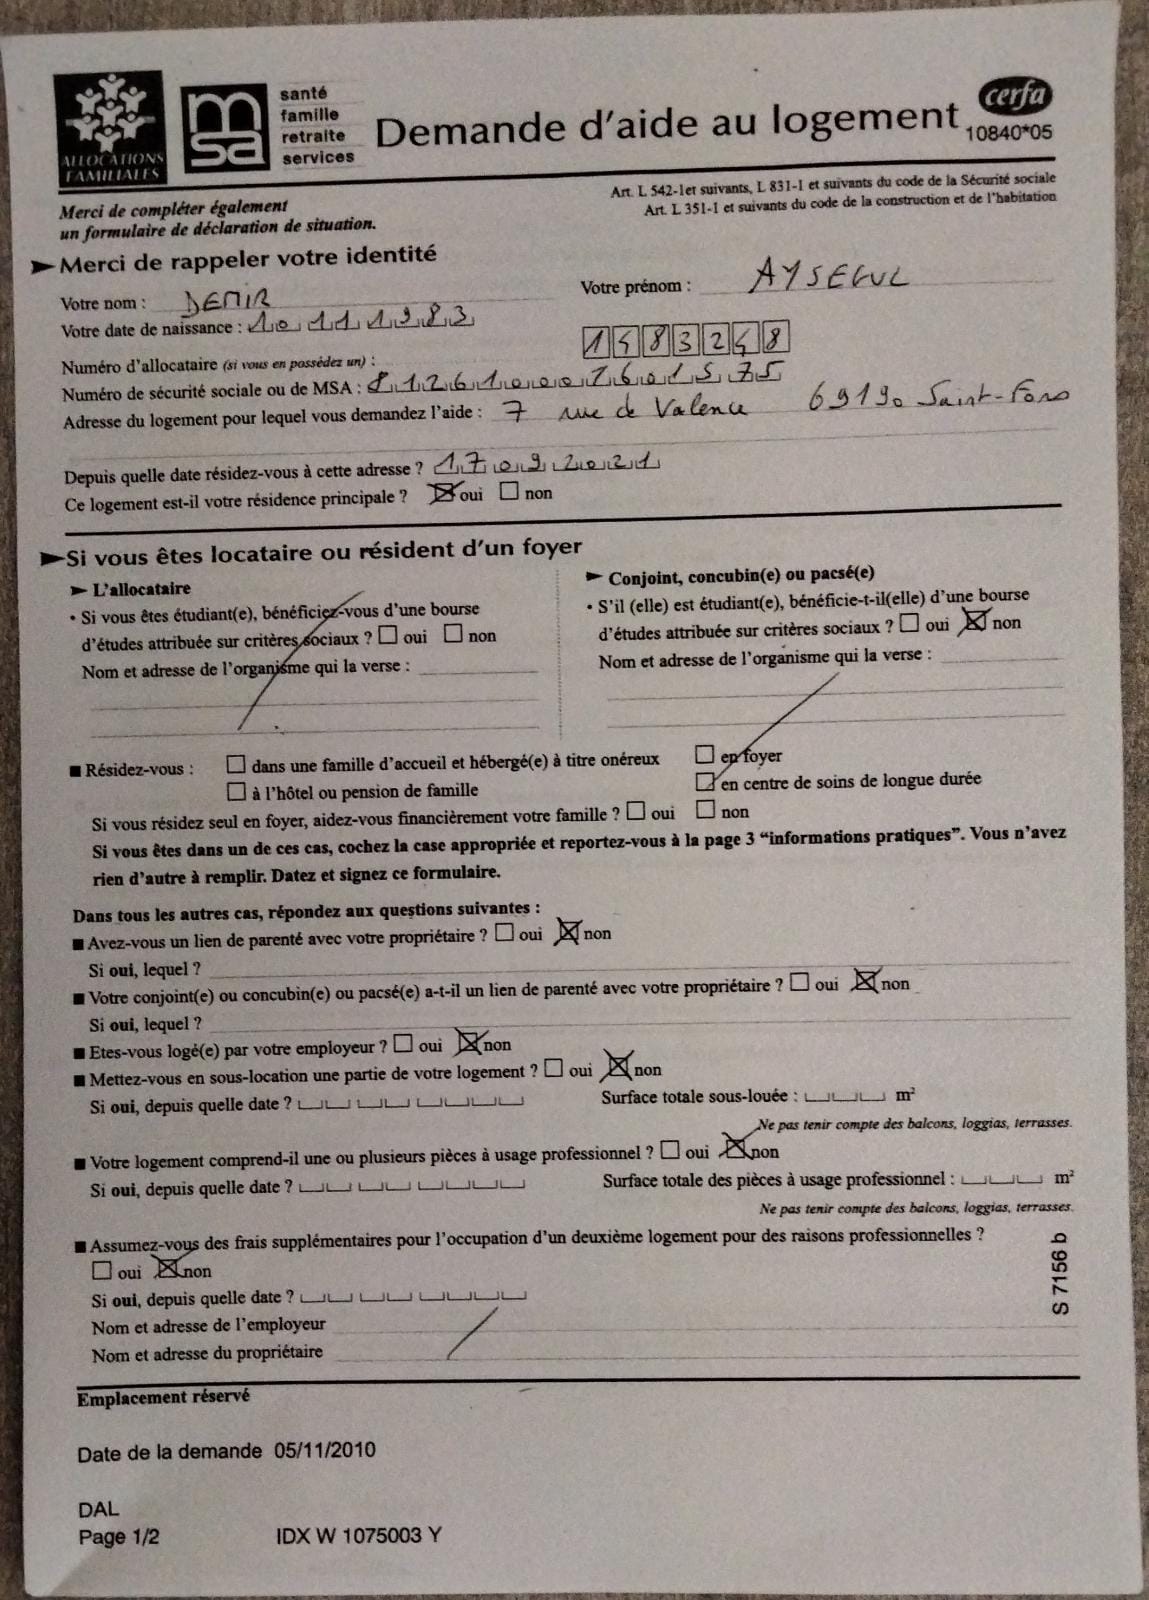 ALLOCATIONS
FAMILIALES
msa
santé
famille
retraite
services
Demande d'aide au logement
cerfa
10840*05
Art. L 542-1et suivants, L 831-1 et suivants du code de la Sécurité sociale
Art. L 351-1 et suivants du code de la construction et de l'habitation
Merci de compléter également
un formulaire de déclaration de situation.
Merci de rappeler votre identité
Votre nom : DEMIR Votre prénom : AYSEGUL
Votre date de naissance : 10 11 1983
Numéro d'allocataire (si vous en possédez un) : 1483248
Numéro de sécurité sociale ou de MSA :
Adresse du logement pour lequel vous demandez l'aide : 7 rue de Valence 69190 Saint-Fons
Depuis quelle date résidez-vous à cette adresse ? 17 09 2021
Ce logement est-il votre résidence principale ? oui non
Si vous êtes locataire ou résident d'un foyer
L'allocataire
• Si vous êtes étudiant(e), bénéficiez-vous d'une bourse
d'études attribuée sur critères sociaux ? oui non
Nom et adresse de l'organisme qui la verse :
Conjoint, concubin(e) ou pacsé(e)
• S'il (elle) est étudiant(e), bénéficie-t-il(elle) d'une bourse
d'études attribuée sur critères sociaux ? oui non
Nom et adresse de l'organisme qui la verse :
Résidez-vous : dans une famille d'accueil et hébergé(e) à titre onéreux en foyer
à l'hôtel ou pension de famille en centre de soins de longue durée
Si vous résidez seul en foyer, aidez-vous financièrement votre famille ? oui non
Si vous êtes dans un de ces cas, cochez la case appropriée et reportez-vous à la page 3 “informations pratiques”. Vous n'avez
rien d'autre à remplir. Datez et signez ce formulaire.
Dans tous les autres cas, répondez aux questions suivantes :
Avez-vous un lien de parenté avec votre propriétaire ? oui non
Si oui, lequel ?
Votre conjoint(e) ou concubin(e) ou pacsé(e) a-t-il un lien de parenté avec votre propriétaire ? oui non
Si oui, lequel ?
Etes-vous logé(e) par votre employeur ? oui non
Mettez-vous en sous-location une partie de votre logement ? oui non
Si oui, depuis quelle date ? Surface totale sous-louée : m²
Ne pas tenir compte des balcons, loggias, terrasses.
Votre logement comprend-il une ou plusieurs pièces à usage professionnel ? oui non
Si oui, depuis quelle date ? Surface totale des pièces à usage professionnel : m²
Ne pas tenir compte des balcons, loggias, terrasses.
Assumez-vous des frais supplémentaires pour l'occupation d'un deuxième logement pour des raisons professionnelles ?
oui non
Si oui, depuis quelle date ?
Nom et adresse de l'employeur
Nom et adresse du propriétaire
S 7156 b
Emplacement réservé
Date de la demande 05/11/2010
DAL
Page 1/2 IDX W 1075003 Y